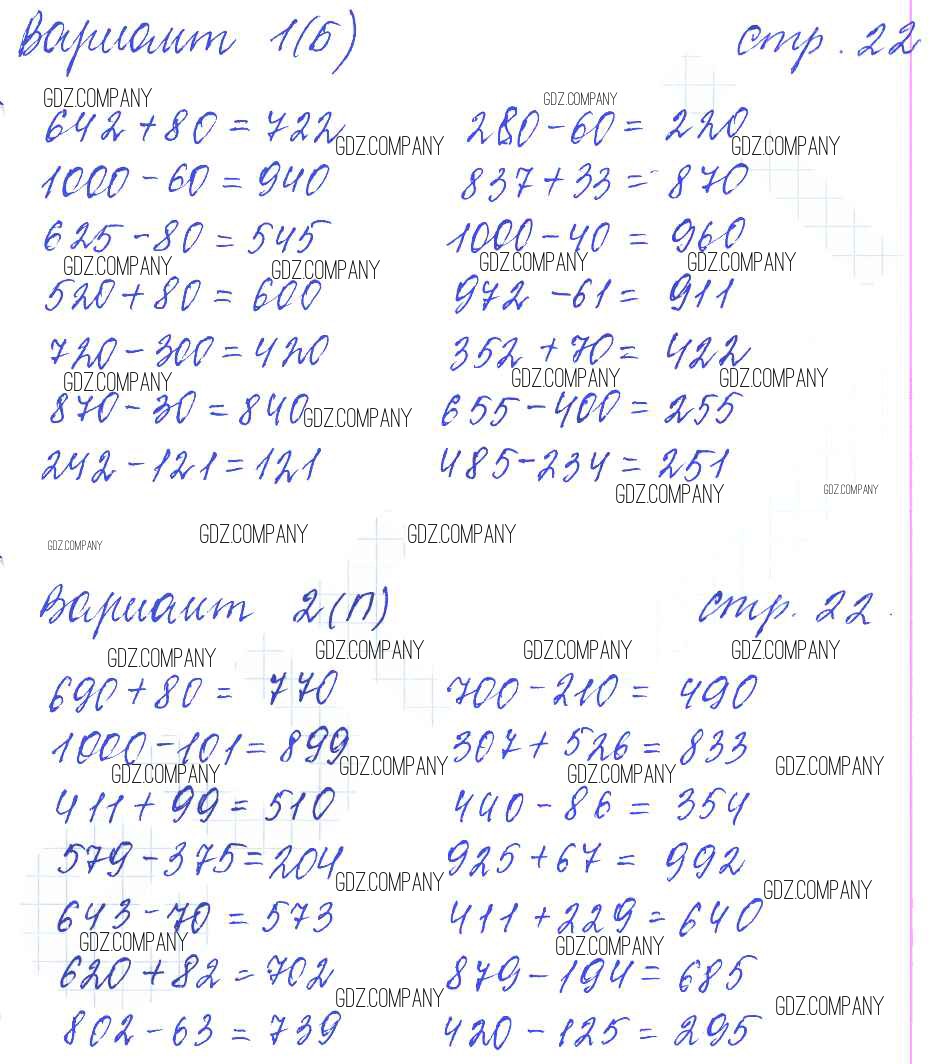 Вариант 1(Б) стр. 22
GDZ.COMPANY GDZ.COMPANY
642 + 80 = 722 280 - 60 = 220
GDZ.COMPANY GDZ.COMPANY
1000 - 60 = 940 837 + 33 = 870
625 - 80 = 545 1000 - 40 = 960
GDZ.COMPANY GDZ.COMPANY GDZ.COMPANY GDZ.COMPANY
520 + 80 = 600 972 - 61 = 911
720 - 300 = 420 352 + 70 = 422
GDZ.COMPANY GDZ.COMPANY GDZ.COMPANY
870 - 30 = 840 655 - 400 = 255
GDZ.COMPANY
242 - 121 = 121 485 - 234 = 251
GDZ.COMPANY GDZ.COMPANY
GDZ.COMPANY GDZ.COMPANY GDZ.COMPANY
Вариант 2(П) стр. 22
GDZ.COMPANY GDZ.COMPANY GDZ.COMPANY GDZ.COMPANY
690 + 80 = 770 700 - 210 = 490
1000 - 101 = 899 307 + 526 = 833
GDZ.COMPANY GDZ.COMPANY GDZ.COMPANY GDZ.COMPANY
411 + 99 = 510 440 - 86 = 354
579 - 375 = 204 925 + 67 = 992
GDZ.COMPANY GDZ.COMPANY
643 - 70 = 573 411 + 229 = 640
GDZ.COMPANY GDZ.COMPANY
620 + 82 = 702 879 - 194 = 685
GDZ.COMPANY GDZ.COMPANY
802 - 63 = 739 420 - 125 = 295